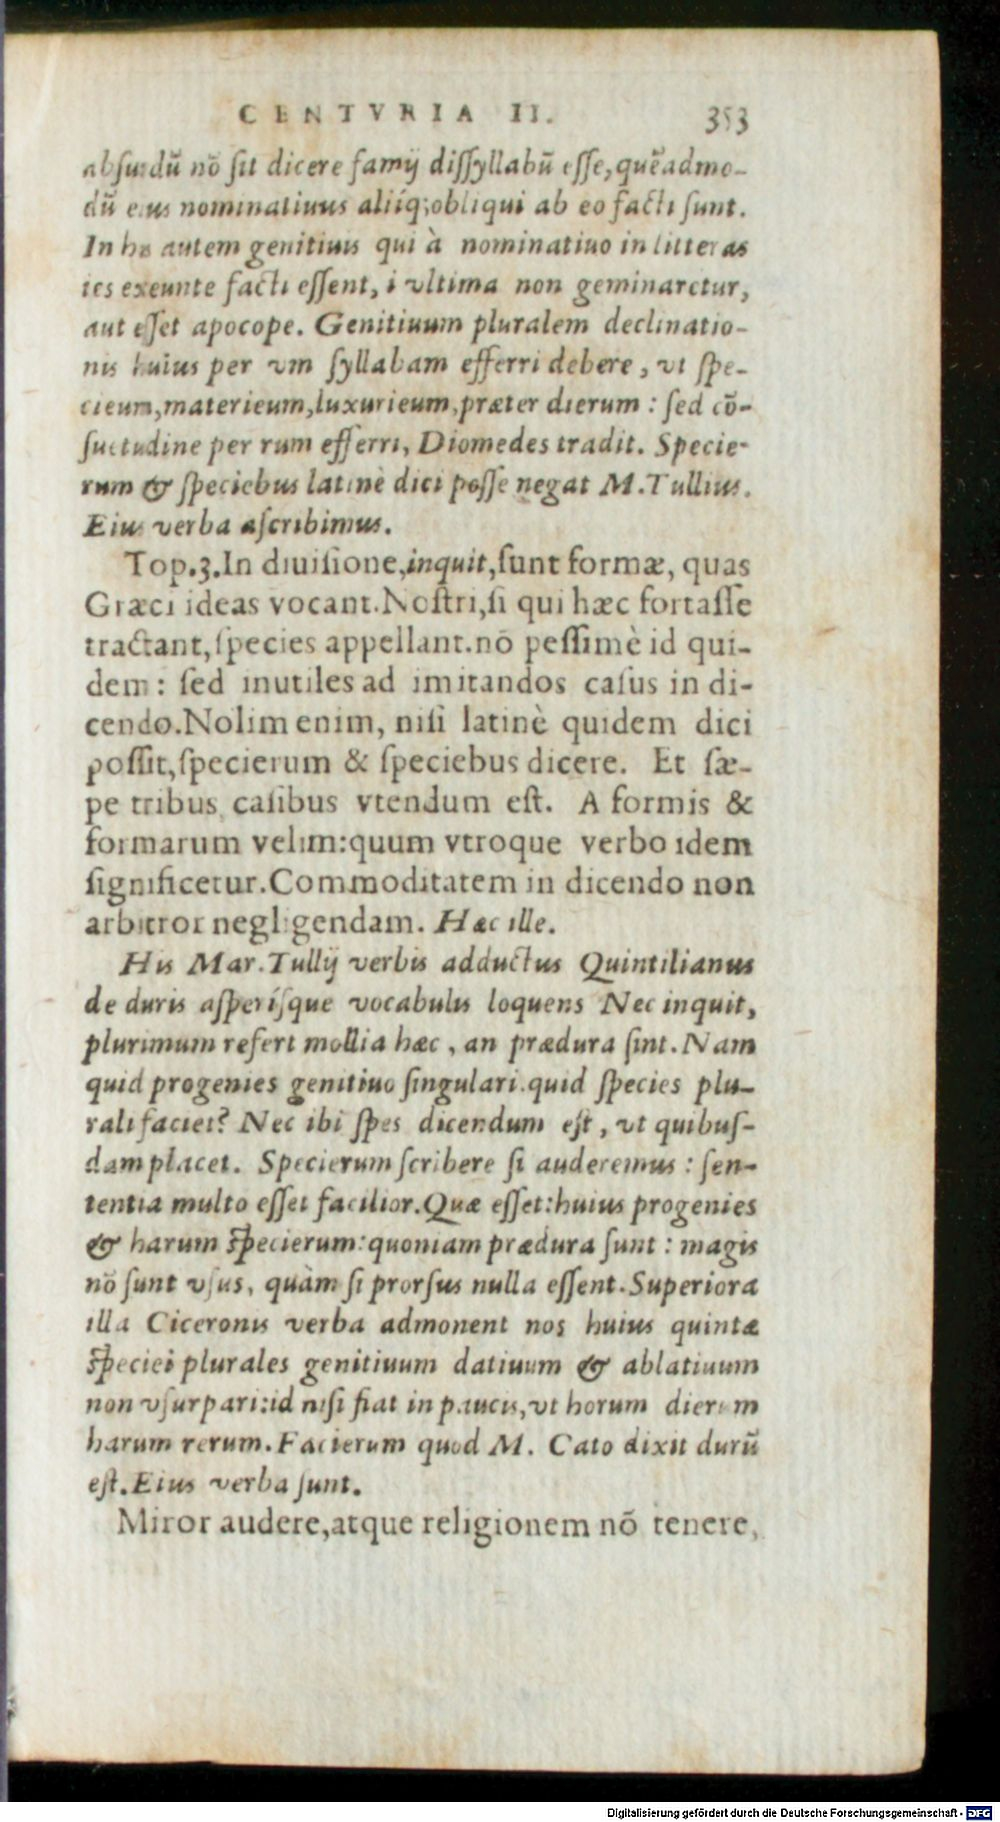 CENTVRIA II. 353
absurdũ nõ sit dicere famij dissyllabũ esse, quẽadmo-
dũ eius nominatiuus aliíq;obliqui ab eo facti sunt.
In his autem genitiuis qui à nominatiuo in litteras
ies exeunte facti essent, i vltima non geminaretur,
aut esset apocope. Genitiuum pluralem declinatio-
nis huius per vm syllabam efferri debere, vt spe-
cieum,materieum,luxurieum,præter dierum : sed cõ-
suetudine per rum efferri, Diomedes tradit. Specie-
rum & speciebus latinè dici posse negat M.Tullius.
Eius verba ascribimus.
Top.3.In diuisione,inquit,sunt formæ, quas
Græci ideas vocant.Nostri,si qui hæc fortasse
tractant,species appellant.nõ pessimè id qui-
dem : sed inutiles ad imitandos casus in di-
cendo.Nolim enim, nisi latinè quidem dici
possit,specierum & speciebus dicere. Et sæ-
pe tribus casibus vtendum est. A formis &
formarum velim:quum vtroque verbo idem
significetur.Commoditatem in dicendo non
arbitror negligendam. Hæc ille.
His Mar.Tullij verbis adductus Quintilianus
de duris asperísque vocabulis loquens Nec inquit,
plurimum refert mollia hæc , an prædura sint.Nam
quid progenies genitiuo singulari.quid species plu-
rali faciet? Nec ibi spes dicendum est , vt quibus-
dam placet. Specierum scribere si auderemus : sen-
tentia multo esset facilior.Quæ esset:huius progenies
& harum specierum:quoniam prædura sunt : magis
nõ sunt vsus, quàm si prorsus nulla essent.Superiora
illa Ciceronis verba admonent nos huius quintæ
speciei plurales genitiuum datiuum & ablatiuum
non vsurpari:id nisi fiat in paucis,vt horum dierum
harum rerum.Facierum quod M. Cato dixit durũ
est.Eius verba sunt.
Miror audere,atque religionem nõ tenere,
Digitalisierung gefördert durch die Deutsche Forschungsgemeinschaft - DFG